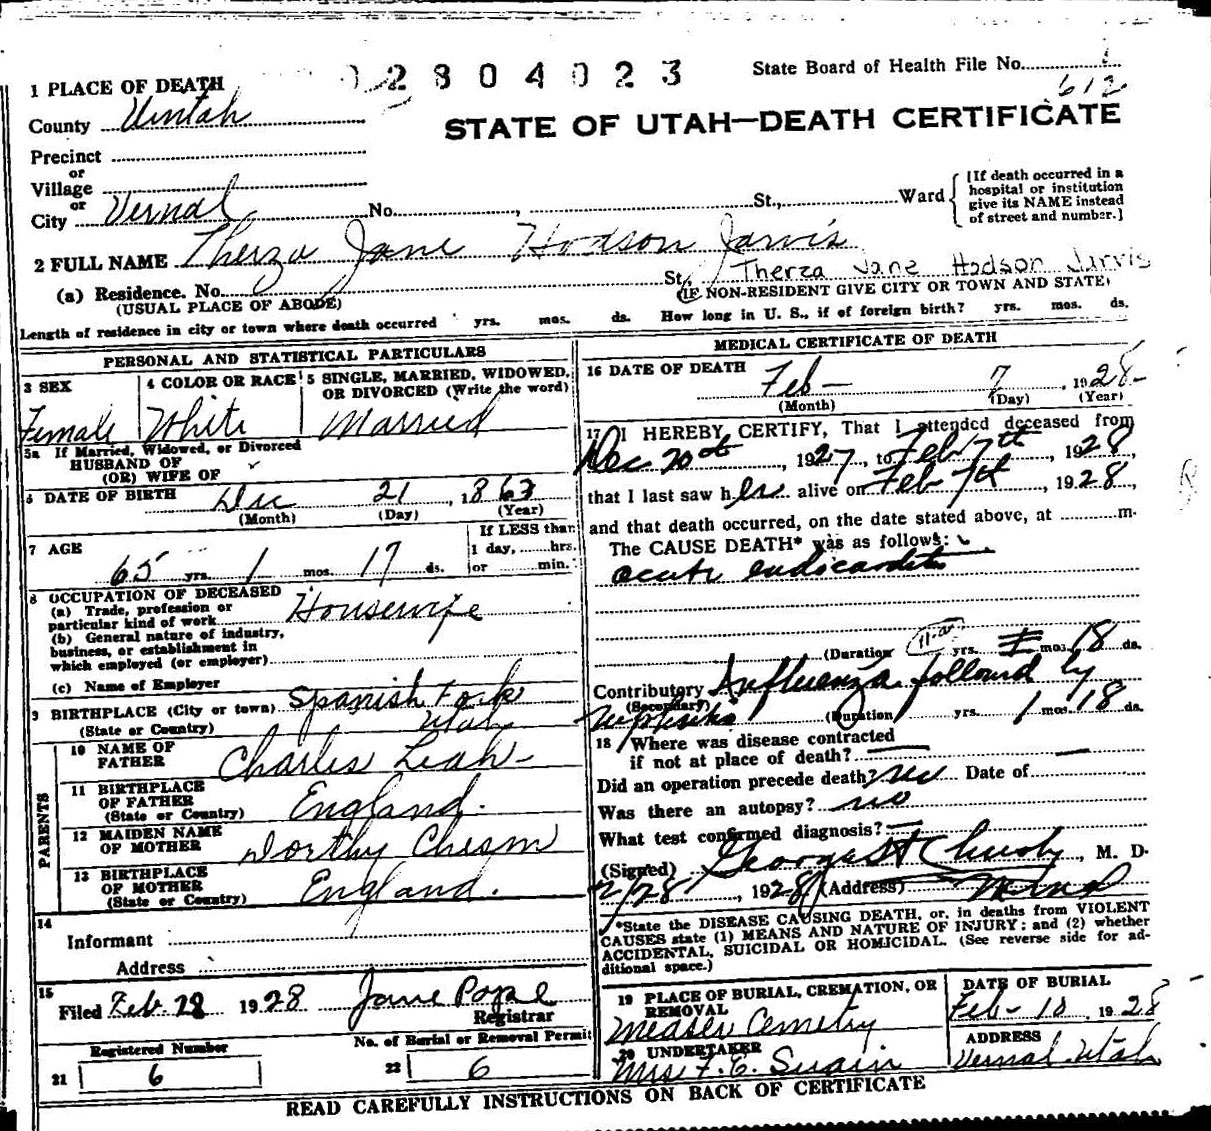 2804023
State Board of Health File No.
612
1 PLACE OF DEATH
County Uintah
STATE OF UTAH—DEATH CERTIFICATE
Precinct
or
Village
or
City Vernal No. , St., Ward
[If death occurred in a
hospital or institution
give its NAME instead
of street and number.]
2 FULL NAME Therza Jane Hodson Jarvis
(a) Residence. No. St. Therza Jane Hodson Jarvis
(USUAL PLACE OF ABODE)
(IF NON-RESIDENT GIVE CITY OR TOWN AND STATE)
Length of residence in city or town where death occurred yrs. mos. ds. How long in U. S., if of foreign birth? yrs. mos. ds.
PERSONAL AND STATISTICAL PARTICULARS
3 SEX
Female
4 COLOR OR RACE
White
5 SINGLE, MARRIED, WIDOWED,
OR DIVORCED (Write the word)
Married
5a If Married, Widowed, or Divorced
HUSBAND OF
(OR) WIFE OF
6 DATE OF BIRTH Dec 21, 1863
(Month) (Day) (Year)
7 AGE
65 yrs. 1 mos. 17 ds.
If LESS than
1 day, hrs.
or min.
8 OCCUPATION OF DECEASED
(a) Trade, profession or
particular kind of work Housewife
(b) General nature of industry,
business, or establishment in
which employed (or employer)
(c) Name of Employer
9 BIRTHPLACE (City or town) Spanish Fork
(State or Country) Utah
PARENTS
10 NAME OF
FATHER Charles Leah
11 BIRTHPLACE
OF FATHER
(State or Country) England.
12 MAIDEN NAME
OF MOTHER Dorthy Chism
13 BIRTHPLACE
OF MOTHER
(State or Country) England.
14
Informant
Address
15
Filed Feb. 28 1928 Jane Pope
Registrar
Registered Number
21 6
No. of Burial or Removal Permit
22 6
MEDICAL CERTIFICATE OF DEATH
16 DATE OF DEATH Feb— 7, 1928-
(Month) (Day) (Year)
17 I HEREBY CERTIFY, That I attended deceased from
Dec 20th, 1927, to Feb 7th, 1928
that I last saw her alive on Feb 7th, 1928,
and that death occurred, on the date stated above, at m.
The CAUSE DEATH* was as follows:
acute endicarditis
(Duration yrs. mos. 18 ds.
Contributory Influenza followed by
(Secondary)
(Duration yrs. 1 mos. 18 ds.
18 Where was disease contracted
if not at place of death?
Did an operation precede death? no Date of
Was there an autopsy? no
What test confirmed diagnosis?
(Signed) George, M. D.
2/28, 1928 (Address)
*State the DISEASE CAUSING DEATH, or, in deaths from VIOLENT
CAUSES state (1) MEANS AND NATURE OF INJURY; and (2) whether
ACCIDENTAL, SUICIDAL OR HOMICIDAL. (See reverse side for ad-
ditional space.)
19 PLACE OF BURIAL, CREMATION, OR
REMOVAL
Measer Cemetry
DATE OF BURIAL
Feb- 10, 1928
20 UNDERTAKER
Mrs F. E. Swain
ADDRESS
Vernal Utah
READ CAREFULLY INSTRUCTIONS ON BACK OF CERTIFICATE